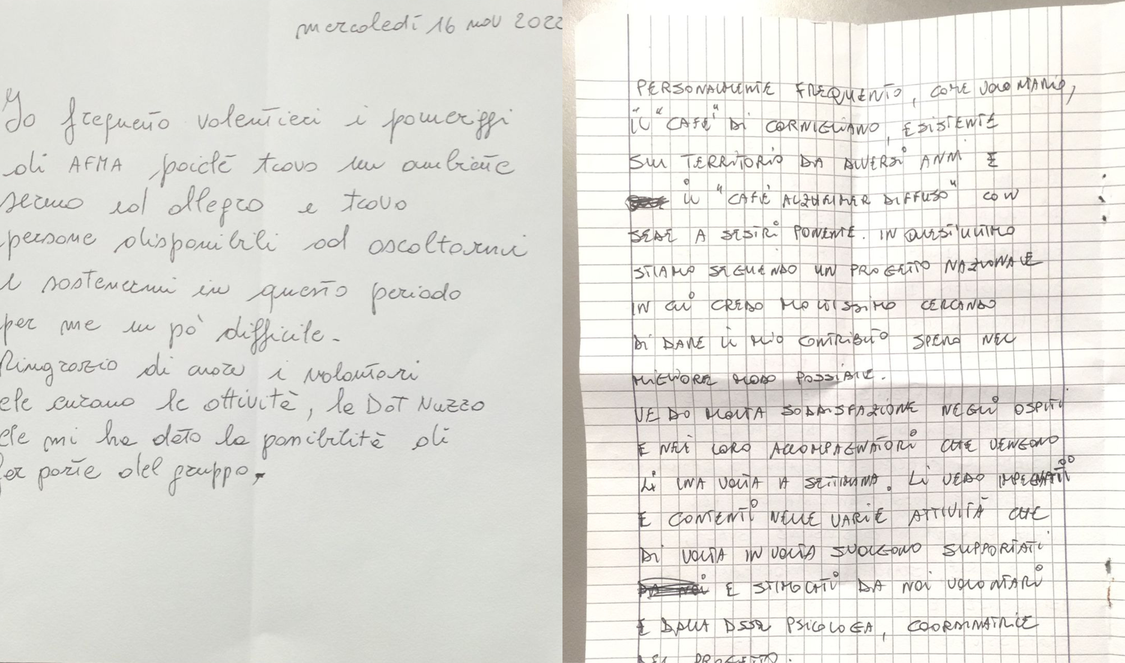 mercoledì 16 nov 2022
Io frequento volentieri i pomeriggi
di AFMA poichè trovo un ambiente
sereno ed allegro e trovo
persone disponibili ad ascoltarmi
e sostenermi in questo periodo
per me un pò difficile.
Ringrazio di cuore i volontari
che curano le attività, la Dot Nuzzo
che mi ha dato la possibilità di
far parte del gruppo.
PERSONALMENTE FREQUENTO, COME VOLONTARIO,
IL "CAFÈ" DI CORNIGLIANO, ESISTENTE
SUL TERRITORIO DA DIVERSI ANNI E
IL "CAFÈ ALZHEIMER DIFFUSO" CON
SEDE A SESTRI PONENTE. IN QUEST'ULTIMO
STIAMO SEGUENDO UN PROGETTO NAZIONALE
IN CUI CREDO MOLTISSIMO CERCANDO
DI DARE IL MIO CONTRIBUTO SPERO NEL
MIGLIORE MODO POSSIBILE.
VEDO MOLTA SODDISFAZIONE NEGLI OSPITI
E NEI LORO ACCOMPAGNATORI CHE VENGONO
LÌ UNA VOLTA A SETTIMANA. LI VEDO IMPEGNATI
E CONTENTI NELLE VARIE ATTIVITÀ CHE
DI VOLTA IN VOLTA SVOLGONO SUPPORTATI
E STIMOLATI DA NOI VOLONTARI
E DALLA DSSA PSICOLOGA, COORDINATRICE
DEL PROGETTO.